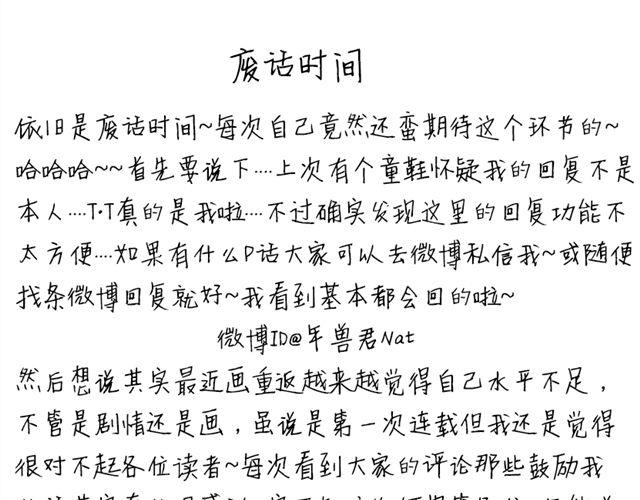 废话时间
依旧是废话时间~每次自己竟然还蛮期待这个环节的~
哈哈哈~~首先要说下····上次有个童鞋怀疑我的回复不是
本人····T·T真的是我啦····不过确实发现这里的回复功能不
太方便····如果有什么P话大家可以去微博私信我~或随便
找条微博回复就好~我看到基本都会回的啦~
微博ID@年兽君Nat
然后想说其实最近画重返越来越觉得自己水平不足，
不管是剧情还是画，虽说是第一次连载但我还是觉得
很对不起各位读者~每次看到大家的评论那些鼓励我